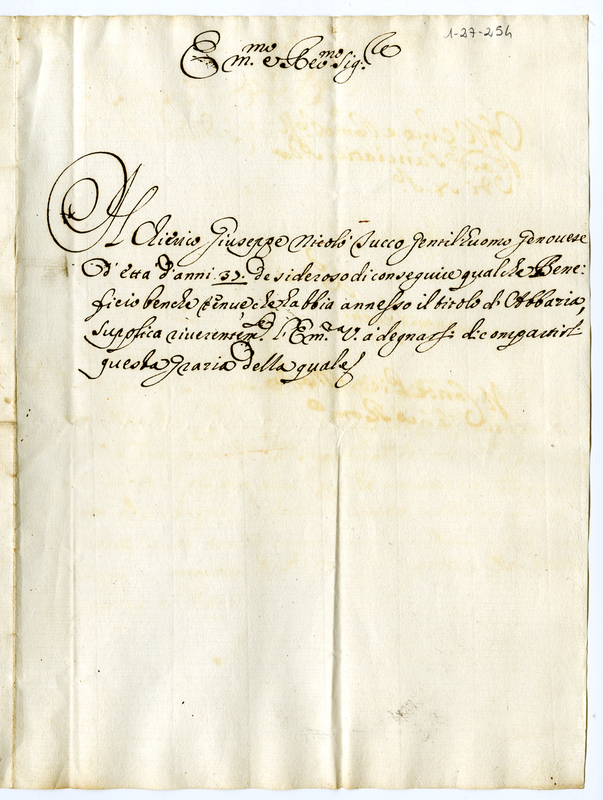 1-27-254
Em.mo e Reu.mo Sig.re
Il Chierico Giuseppe Nicolò Succo Gentilhuomo Genouese
d'età d'anni 37. desideroso di conseguire qualche Bene:
ficio benche tenue, che habbia annesso il titolo di Abbazia,
supplica riuerentem.te l'Em.za V. à degnarsi di compartirli
questa grazia della quale